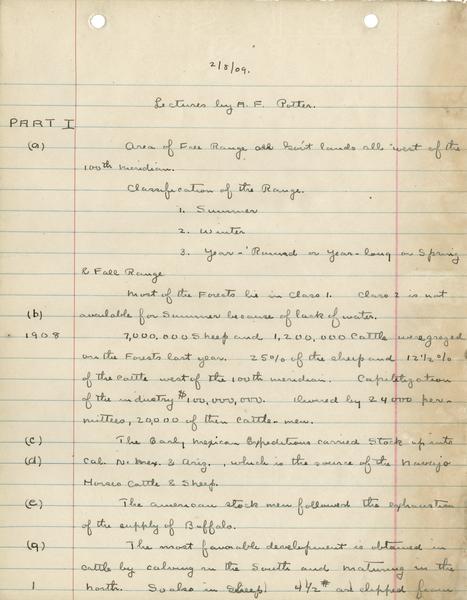 2/8/09.
Lectures by A. F. Potter.
PART I
(a) Area of Free Range all Gov't lands all west of the
100th meridian.
Classification of the Range.
1. Summer
2. Winter
3. Year-'Round or Year-long or Spring
& Fall Range
Most of the Forests lie in Class 1. Class 2 is not
(b) available for Summer because of lack of water.
1908 7,000,000 Sheep and 1,200,000 Cattle were grazed
on the Forests last year. 25% of the sheep and 12 1/2 %
of the cattle west of the 100th meridian. Capitilization
of the industry $100,000,000. Owned by 24000 per-
mittees, 20,000 of them Cattle-men.
(c) The Early Mexican Expeditions carried Stock up into
(d) Cal. N. Mex. & Ariz., which is the source of the Navajo
Horses Cattle & Sheep.
(e) The american stock men followed the exhaustion
of the supply of Buffalo.
(g) The most favorable development is obtained in
cattle by calving in the South and maturing in the
1 north. So also in Sheep. 4 1/2 # as clipped from